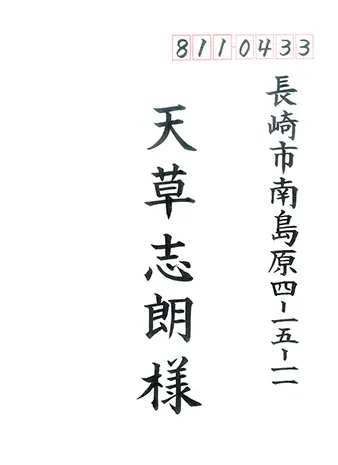 8110433
長崎市南島原四-一五-一一
天草志朗様